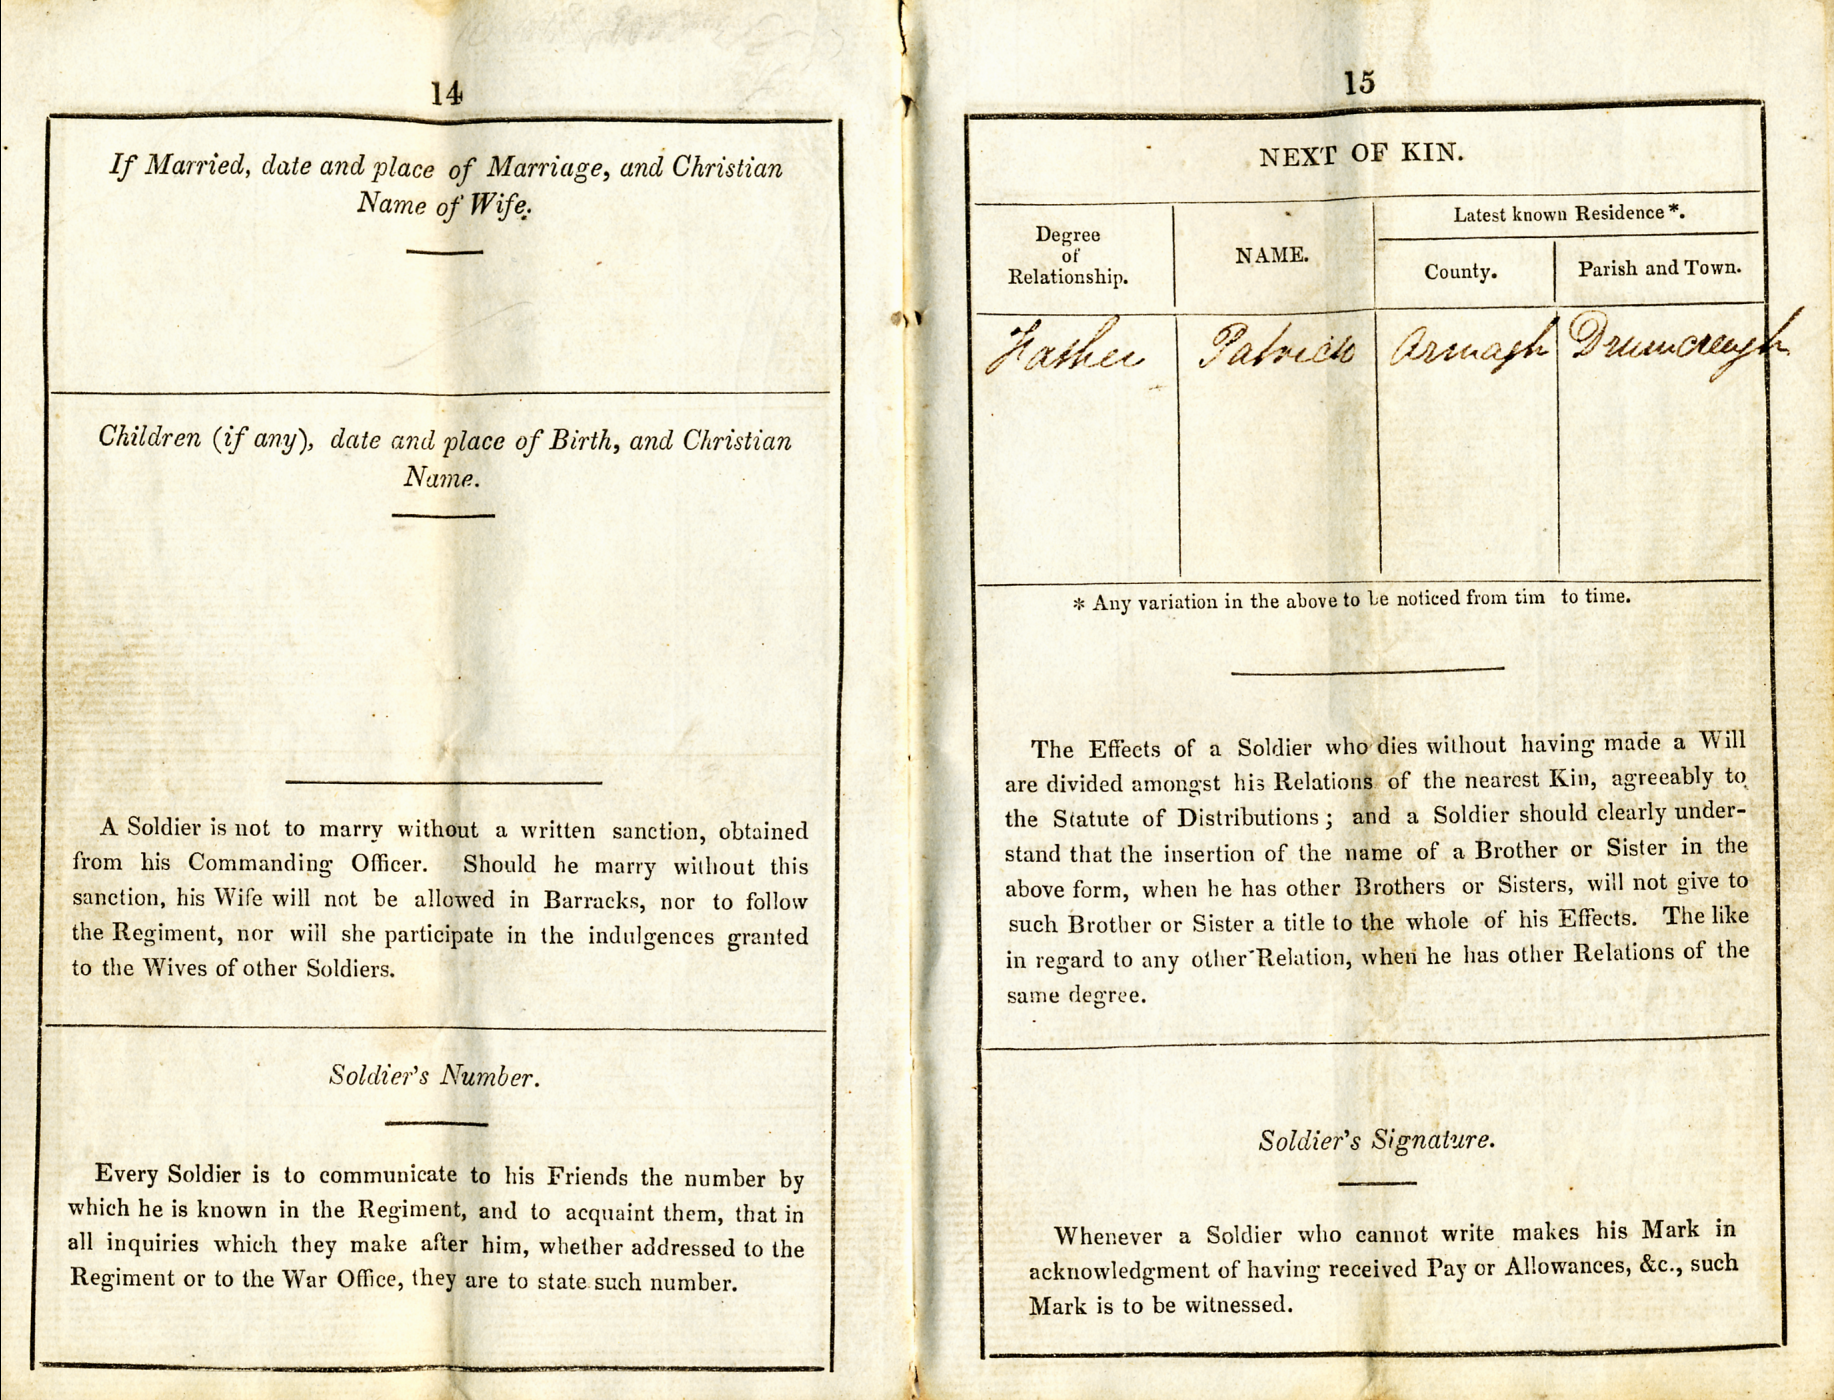 14
If Married, date and place of Marriage, and Christian
Name of Wife.
Children (if any), date and place of Birth, and Christian
Name.
A Soldier is not to marry without a written sanction, obtained
from his Commanding Officer. Should he marry without this
sanction, his Wife will not be allowed in Barracks, nor to follow
the Regiment, nor will she participate in the indulgences granted
to the Wives of other Soldiers.
Soldier's Number.
Every Soldier is to communicate to his Friends the number by
which he is known in the Regiment, and to acquaint them, that in
all inquiries which they make after him, whether addressed to the
Regiment or to the War Office, they are to state such number.
15
NEXT OF KIN.
Degree
of
Relationship.
NAME.
Latest known Residence*.
County.
Parish and Town.
Father Patrick Armagh Drumcreagh
* Any variation in the above to be noticed from tim to time.
The Effects of a Soldier who dies without having made a Will
are divided amongst his Relations of the nearest Kin, agreeably to
the Statute of Distributions; and a Soldier should clearly under-
stand that the insertion of the name of a Brother or Sister in the
above form, when he has other Brothers or Sisters, will not give to
such Brother or Sister a title to the whole of his Effects. The like
in regard to any other Relation, when he has other Relations of the
same degree.
Soldier's Signature.
Whenever a Soldier who cannot write makes his Mark in
acknowledgment of having received Pay or Allowances, &c., such
Mark is to be witnessed.